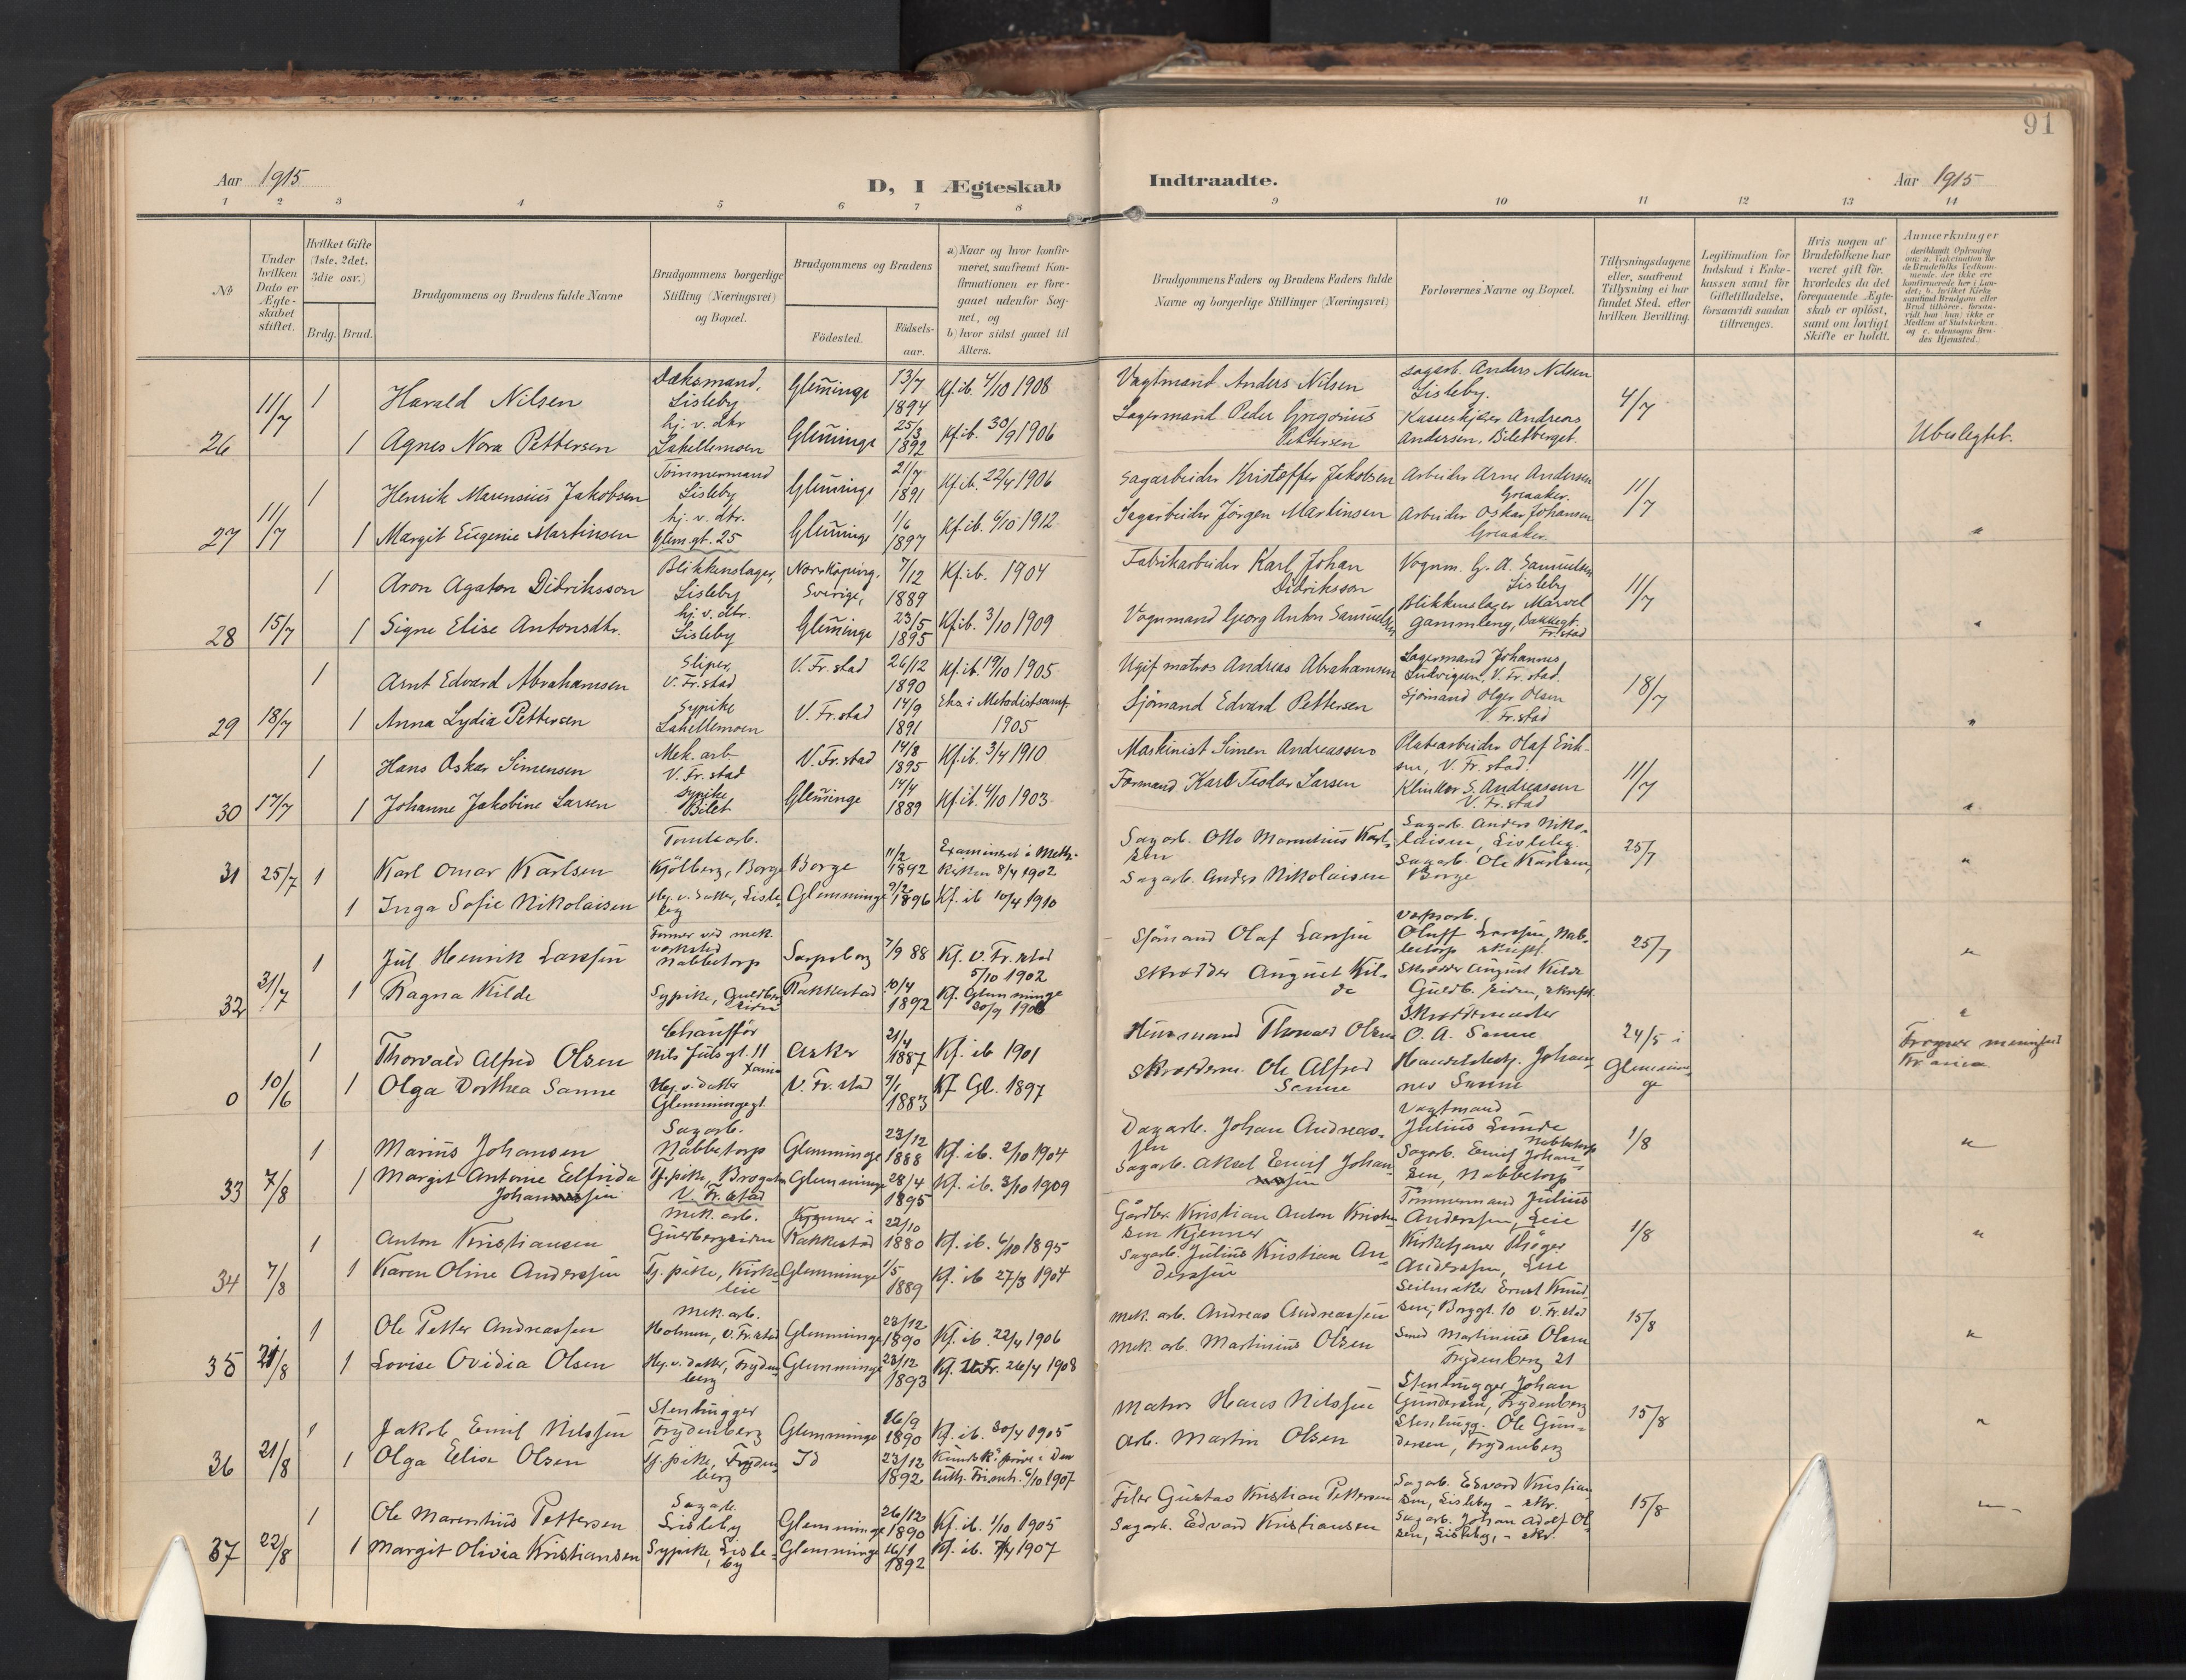 91
Aar 1915
D, I Ægteskab
Indtraadte.
Aar 1915
1 2 3 4 5 6 7 8 9 10 11 12 13 14
No
Under hvilken Dato er Ægteskabet stiftet.
Hvilket Gifte (1ste, 2det, 3die osv.)
Brdg. Brud.
Brudgommens og Brudens fulde Navne
Brudgommens borgerlige Stilling (Næringsvei) og Bopæl.
Brudgommens og Brudens
Fødested.
Fødselsaar.
a) Naar og hvor konfirmeret, saafremt Konfirmationen er foregaaet udenfor Sognet, og
b) hvor sidst gaaet til Alters.
Brudgommens Faders og Brudens Faders fulde Navne og borgerlige Stillinger (Næringsvei)
Forlovernes Navne og Bopæl.
Tillysningsdagene eller, saafremt Tillysning ei har fundet Sted, efter hvilken Bevilling.
Legitimation for Indskud i Enkekassen samt for Giftetilladelse, forsaavidt saadan tiltrænges.
Hvis nogen af Brudefolkene har været gift før, hvorledes da det foregaaende Ægteskab er opløst, samt om lovligt Skifte er holdt.
Anmærkninger
26 11/7 1 Harald Nilsen Dæksmand, Lisleby Gleminge 13/7 1894 Kf. ib. 4/10 1908 Vagtmand Anders Nilsen Sagarb. Anders Nilsen Lisleby. 4/7
1 Agnes Nora Pettersen hj. v. dtr Lahellemoen Gleminge 25/3 1892 Kf. ib. 30/9 1906 Lagermand Peder Gregorius Pettersen Andreas Andersen, Biletberget. Ubeslegtet.
27 11/7 1 Henrik Marensius Jakobsen Tømmermand Lisleby Gleminge 21/7 1891 Kf. ib. 22/4 1906 Sagarbeider Kristoffer Jakobsen Arbeider Arne Andersen Greaaker. 11/7
1 Margit Eugenie Martinsen hj. v. dtr. Glem.gt. 25 Gleminge 1/6 1897 Kf. ib. 6/10 1912 Sagarbeider Jørgen Martinsen Arbeider Oskar Johansen Greaaker. "
28 15/7 1 Aron Agaton Didriksson Blikkenslager, Lisleby Norrköping, Sverige, 7/12 1889 Kf. ib. 1904 Fabrikarbeider Karl Johan Didriksson Vognm. G. A. Samuelsen Lisleby 11/7
1 Signe Elise Antonsdtr. hj. v. dtr. Lisleby Gleminge 23/5 1895 Kf. ib. 3/10 1909 Vognmand Georg Anton Samuelsen Blikkenslager Marvel Gammleng, Bakkegt. Fr.stad "
29 18/7 1 Arnt Edvard Abrahamsen Sliper, V. Fr.stad V. Fr.stad 26/12 1890 Kf. ib. 19/10 1905 Ugift matros Andreas Abrahamsen Lagermand Johannes Ludvigsen, V. Fr.stad. 18/7
1 Anna Lydia Pettersen Sypike Lahellemoen V. Fr.stad 14/9 1891 Eks. i Metodistsamf. 1905 Sjømand Edvard Pettersen Sjømand Olger Olsen V. Fr.stad "
30 17/7 1 Hans Oskar Simensen Mek. arb. V. Fr.stad V. Fr.stad 14/8 1895 Kf. ib. 3/4 1910 Maskinist Simen Andreassen Platearbeider Olaf Eriksen, V. Fr.stad. 11/7
1 Johanne Jakobine Larsen Sypike Bilet Gleminge 14/4 1889 Kf. ib. 4/10 1903 Formand Karl Teodor Larsen Klinker S. Andreassen V. Fr.stad "
31 25/7 1 Karl Omar Karlsen Tomtearb. Kjölberg, Borge Borge 11/2 1892 Examineret i Meth.kirken 8/4 1902 Sagarb. Otto Marentius Karlsen Sagarb. Anders Nikolaisen, Lisleby. 25/7 "
1 Inga Sofie Nikolaisen Hj. v. datter, Lisleby Glemminge 9/2 1896 Kf. ib 10/4 1910 Sagarb. Anders Nikolaisen Sagarb. Ole Karlsen, Borge
32 31/7 1 Jul Henrik Larssen Former ved mek. verksted Nabbetorp Sarpsborg 7/9 88 Kf. V. Fr.stad 5/10 1902 Sjömand Olaf Larssen Verksarb. Oluff Larssen, Nabbetorp 25/7 "
1 Ragna Kilde Sypike, Guldbergsiden Rakkestad 10/4 1892 Kf. Glemminge 30/9 1906 Skrædder August Kilde Skrædder August Kilde Guldb. siden, skriftl. "
0 10/6 1 Thorvald Alfred Olsen Chauffør Nils Juls gt. 11 Xania Asker 21/4 1887 Kf. ib 1901 Thorvald Olsen Skræddermester O. A. Sanne 24/5 i Glemminge Frogner menighed Kr.ania
1 Olga Dorthea Sanne Hj. v. datter Glemmingegt. V. Fr.stad 9/1 1883 Kf. Gl. 1897 Skrædderm. Ole Alfred Sanne Handelsbetj. Johannes Sanne
33 7/8 1 Marius Johansen Sagarb. Nabbetorp Glemminge 23/12 1888 Kf. ib. 2/10 1904 Dagarb. Johan Andreassen Vagtmand Julius Lunde Nabbetorp 1/8 "
1 Margit Antonie Elfrida Johanssen Tj. pike, Brogaten V. Fr.stad Glemminge 28/4 1895 Kf. ib. 3/10 1909 Sagarb. Aksel Emil Johanssen Sagarb. Emil Johansen, Nabbetorp
34 7/8 1 Anton Kristiansen Mek. arb. Guldbergsiden Kjenner i Rakkestad 22/10 1880 Kf. ib. 6/10 1895 Gårdbr. Kristian Anton Kristiansen Kjenner Tømmermand Julius Anderssen, Leie 1/8 "
1 Karen Oline Anderssen Tj. pike, Kirkeleie Glemminge 1/5 1889 Kf. ib 27/3 1904 Sagarb. Julius Kristian Anderssen Kirketjener Thøger Anderssen, Leie
35 21/8 1 Ole Petter Andreassen Mek. arb. Holmen, V. Fr.stad Glemminge 23/12 1890 Kf. ib. 22/4 1906 Mek. arb. Andreas Andreassen Seilmaker Ernst Knudsen, Byggt. 10 V. Fr.stad 15/8 "
1 Lovise Ovidia Olsen Hj. v. datter, Frydenberg Glemminge 23/12 1893 Kf. V. Fr. 26/4 1908 Mek. arb. Martinius Olsen Smed Martinius Olsen Frydenberg 21
36 21/8 1 Jakob Emil Nilssen Stenhugger Frydenberg Glemminge 16/9 1890 Kf. ib. 30/4 1905 Matros Hans Nilssen Stenhugger Johan Gundersen, Frydenberg 15/8 "
1 Olga Elise Olsen Tj. pike, Frydenberg Id 23/12 1892 Kundsk. prøve i Den luth. Frimh. 6/10 1907 Arb. Martin Olsen Stenhugg. Ole Gundersen, Frydenberg
37 22/8 1 Ole Marentius Pettersen Sagarb. Lisleby Glemminge 26/12 1890 Kf. ib. 1/10 1905 Filer Gustav Kristian Pettersen Sagarb. Edvard Kristiansen, Lisleby - skr. 15/8 "
1 Margit Olivia Kristiansen Sypike, Lisleby Glemminge 16/1 1892 Kf. ib. 7/4 1907 Sagarb. Edvard Kristiansen Sagarb. Johan Adolf Olsen, Lisleby, - skr.